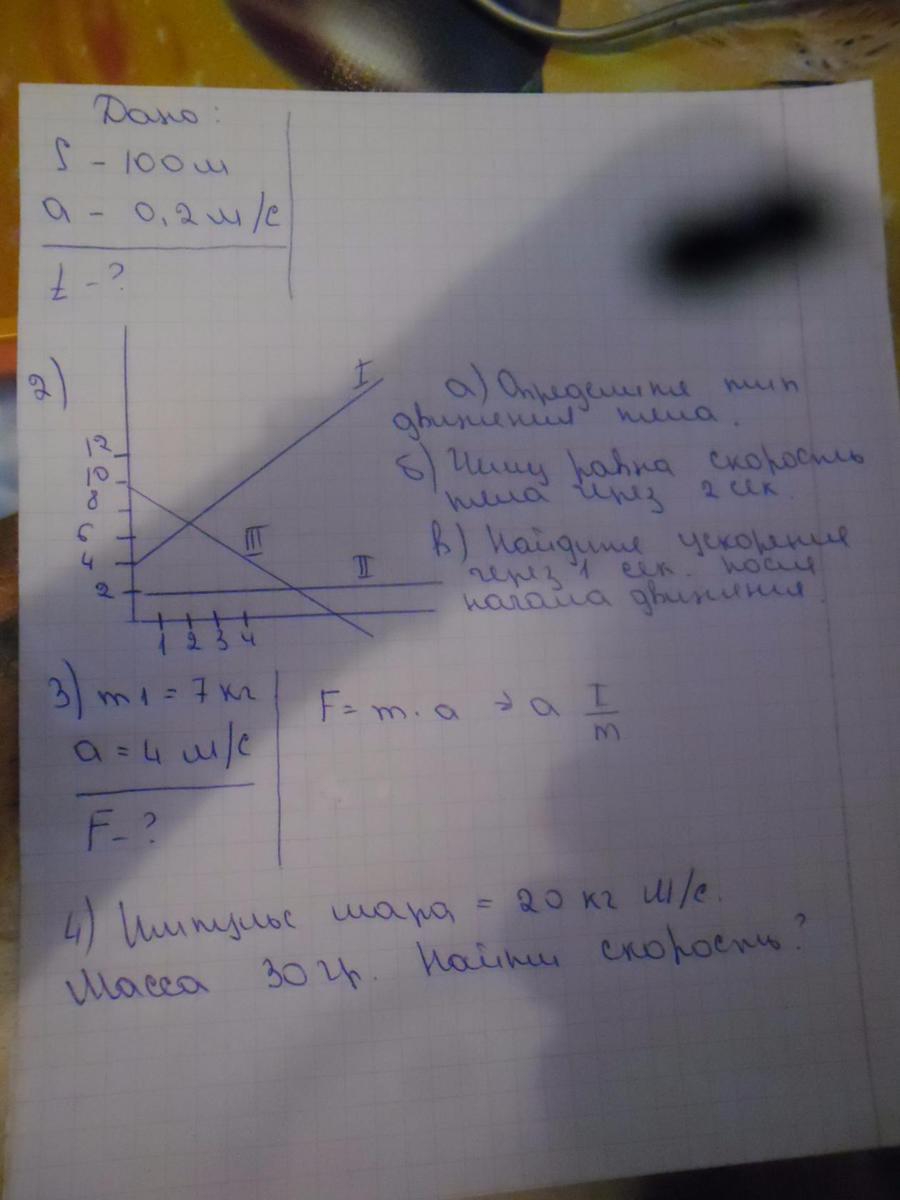 Дано:
S - 100 м
a - 0,2 м/с
t - ?
2)
I
12
10
8
6
4
2
III
II
1 2 3 4
а) Определите тип
движения тела.
б) Чему равна скорость
тела через 2 сек.
в) Найдите ускорение
через 1 сек. после
начала движения.
3) m1 = 7 кг
a = 4 м/с
F - ?
F = m · a ⇒ a I/m
4) Импульс шара = 20 кг м/с.
Масса 30 гр. Найти скорость?